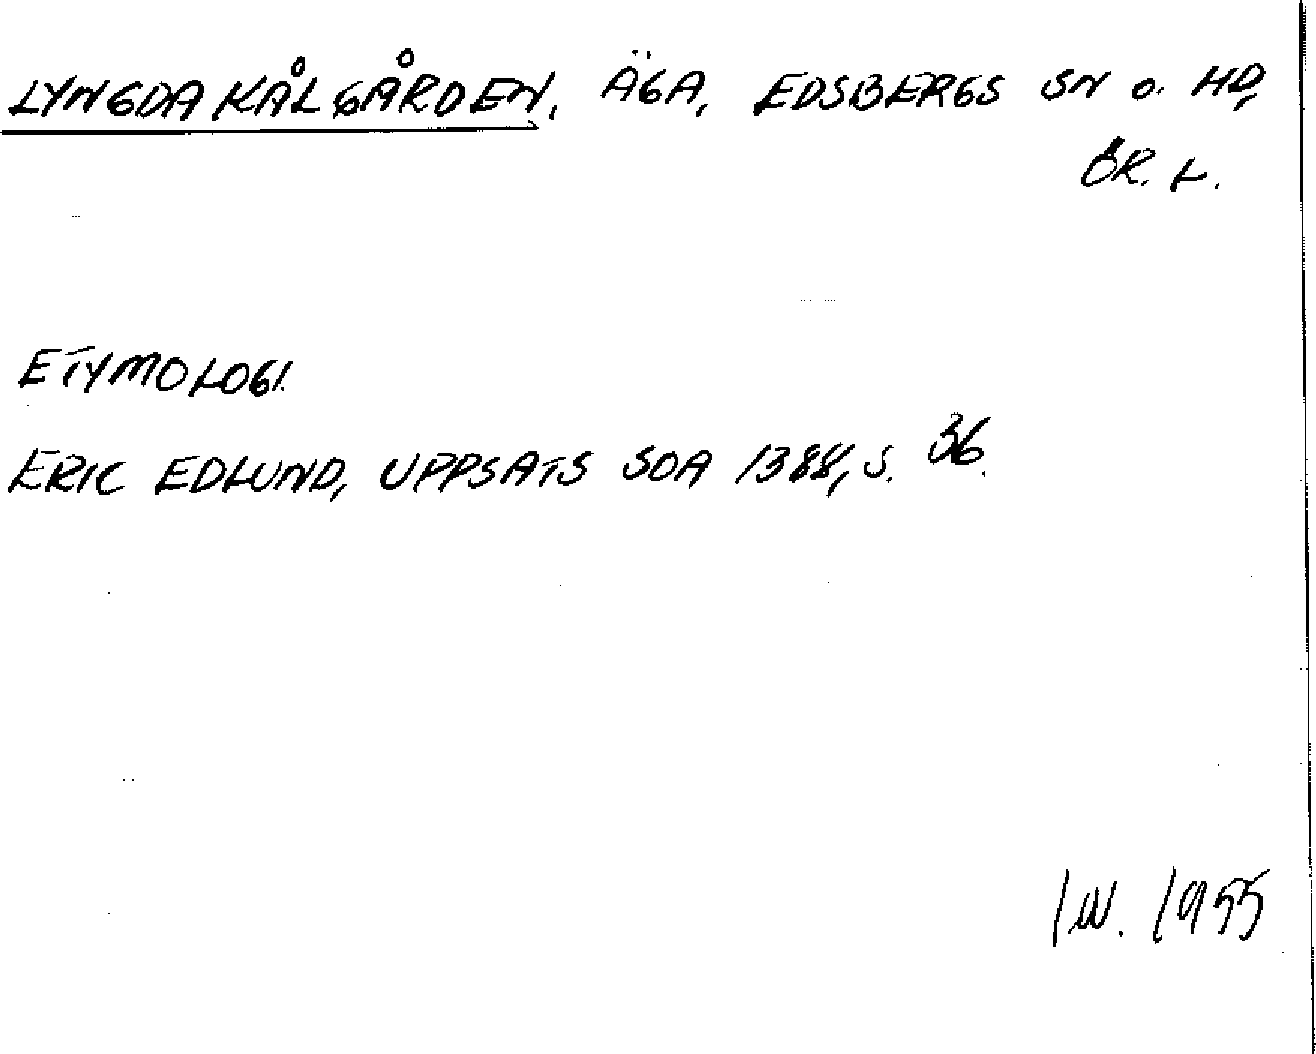 LYNGDAKÅLGÅRDEN, ÄGA, EDSBERGS SN O. HD,
ÖR. L.
ETYMOLOGI.
ERIC EDLUND, UPPSATS SOA 1388, S. 36.
1955